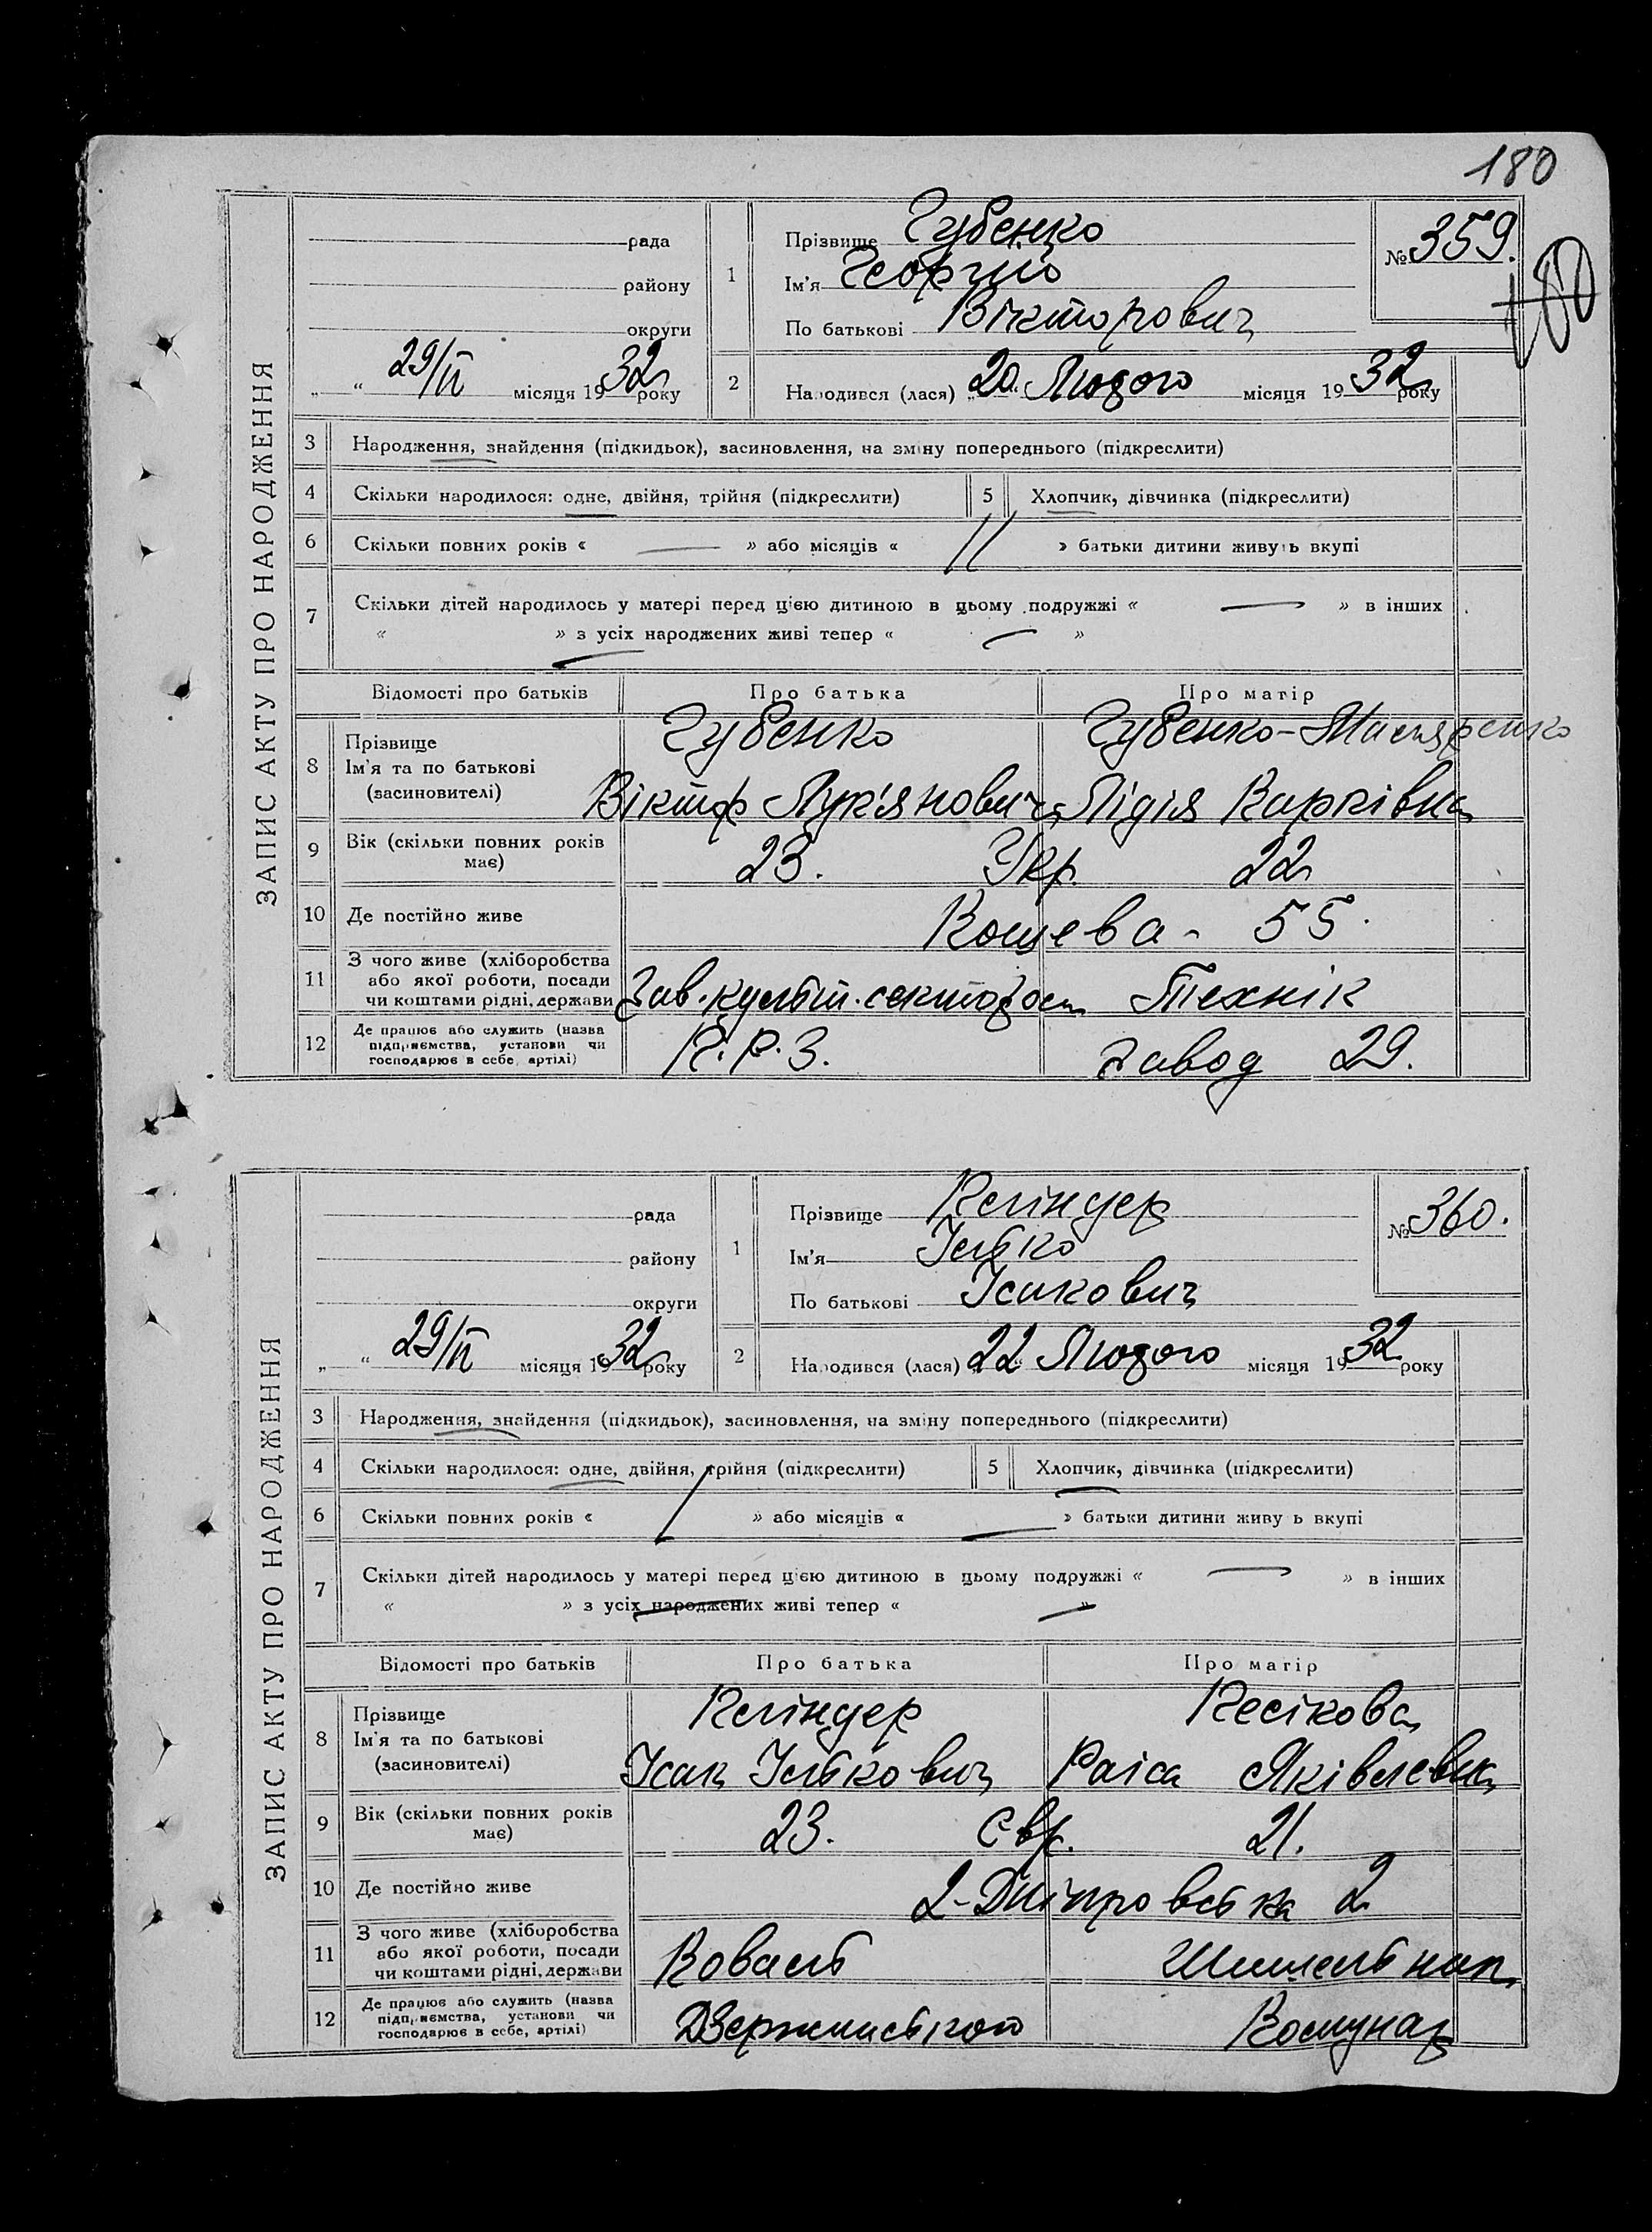 180
ЗАПИС АКТУ ПРО НАРОДЖЕННЯ
рада
району
округи
„ “ 29/II місяця 1932 року
1
Прізвище Губенко
Ім'я Георгій
По батькові Вікторович
№ 359.
180
2 Народився (лася) „20“ Лютого місяця 1932 року
3 Народження, знайдення (підкидьок), засиновлення, на зміну попереднього (підкреслити)
4 Скільки народилося: одне, двійня, трійня (підкреслити) 5 Хлопчик, дівчинка (підкреслити)
6 Скільки повних років « — » або місяців « » батьки дитини живуть вкупі
7 Скільки дітей народилось у матері перед цією дитиною в цьому подружжі « — » в інших
« » з усіх народжених живі тепер « — »
Відомості про батьків Про батька Про матір
8 Прізвище Ім'я та по батькові (засиновителі)
Губенко Губенко-
Віктор Лук'янович Лідія Карківна
9 Вік (скільки повних років має) 23. Укр. 22
10 Де постійно живе Кошева - 55.
11 З чого живе (хліборобства або якої роботи, посади чи коштами рідні, держави Зав. культ. сектором Технік
12 Де працює або служить (назва підприємства, установи чи господарює в себе, артілі) К.Р.З. Завод 29.
ЗАПИС АКТУ ПРО НАРОДЖЕННЯ
рада
району
округи
„ “ 29/II місяця 1932 року
1
Прізвище Кліндер
Ім'я Ілько
По батькові Ісакович
№ 360.
2 Народився (лася) „22“ Лютого місяця 1932 року
3 Народження, знайдення (підкидьок), засиновлення, на зміну попереднього (підкреслити)
4 Скільки народилося: одне, двійня, трійня (підкреслити) 5 Хлопчик, дівчинка (підкреслити)
6 Скільки повних років « » або місяців « — » батьки дитини живу ь вкупі
7 Скільки дітей народилось у матері перед цією дитиною в цьому подружжі « — » в інших
« » з усіх народжених живі тепер « — »
Відомості про батьків Про батька Про матір
8 Прізвище Ім'я та по батькові (засиновителі)
Кліндер Кесікова
ІсакІлькович Раіса Яківлевна
9 Вік (скільки повних років має) 23. Євр. 21.
10 Де постійно живе 2-Дніпровська 2
11 З чого живе (хліборобства або якої роботи, посади чи коштами рідні, держави Коваль
12 Де працює або служить (назва підприємства, установи чи господарює в себе, артілі) Комунар